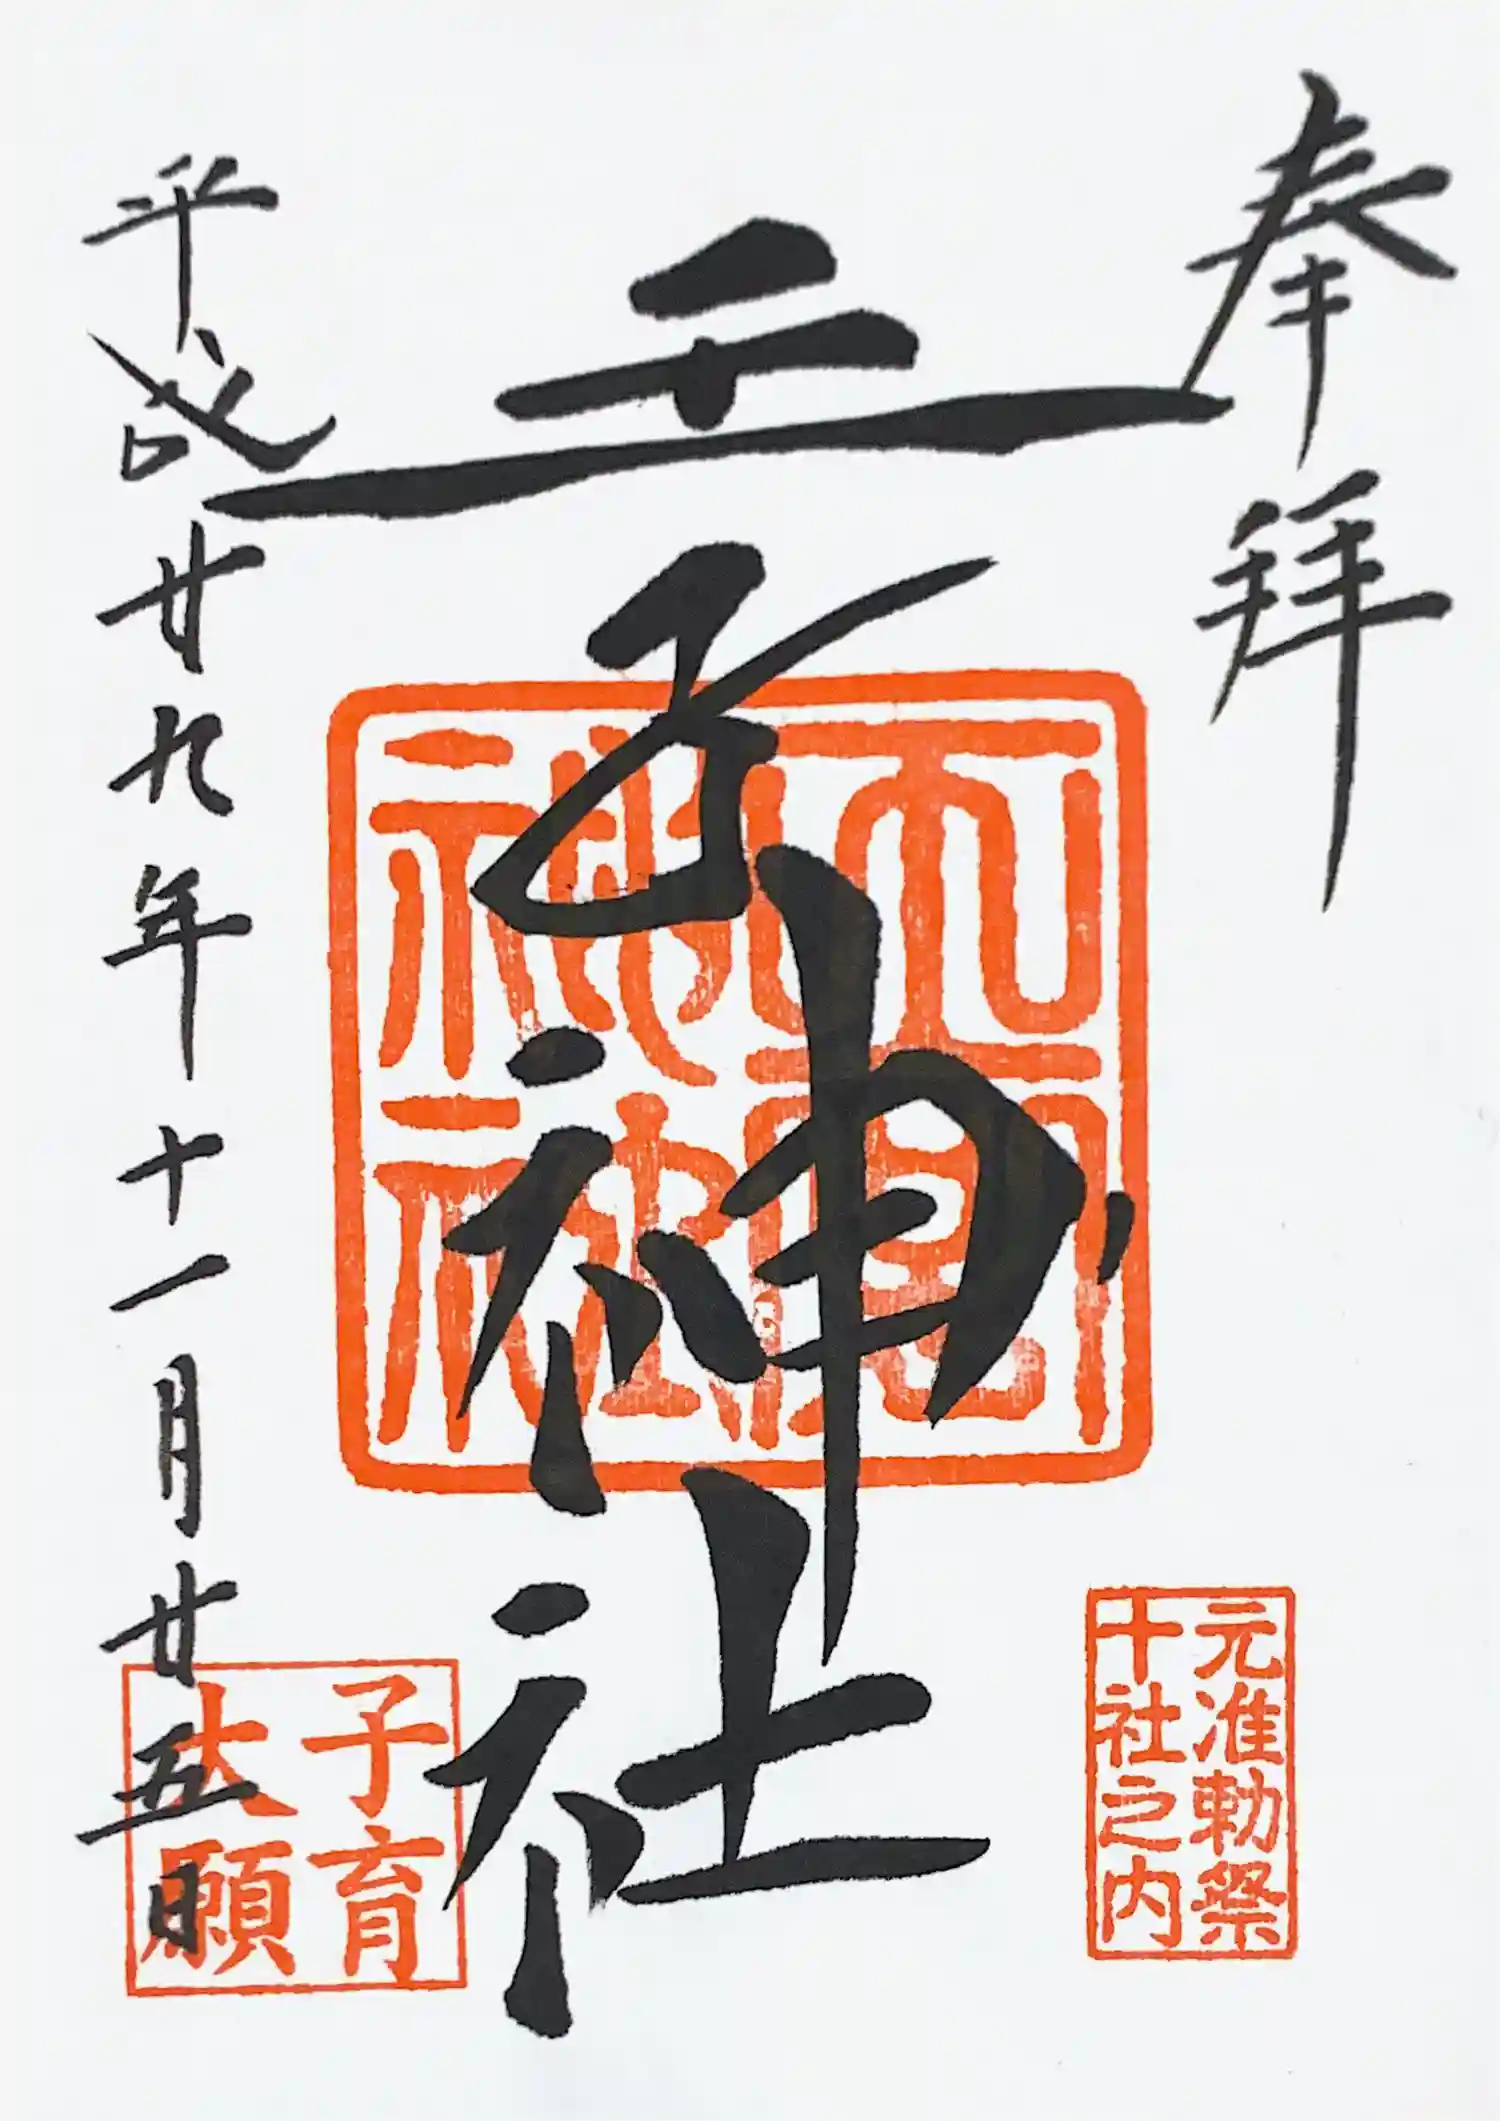 奉拝
元准勅祭
十社之内
王子神社
神社
子育
大願
平成廿九年十一月廿五日